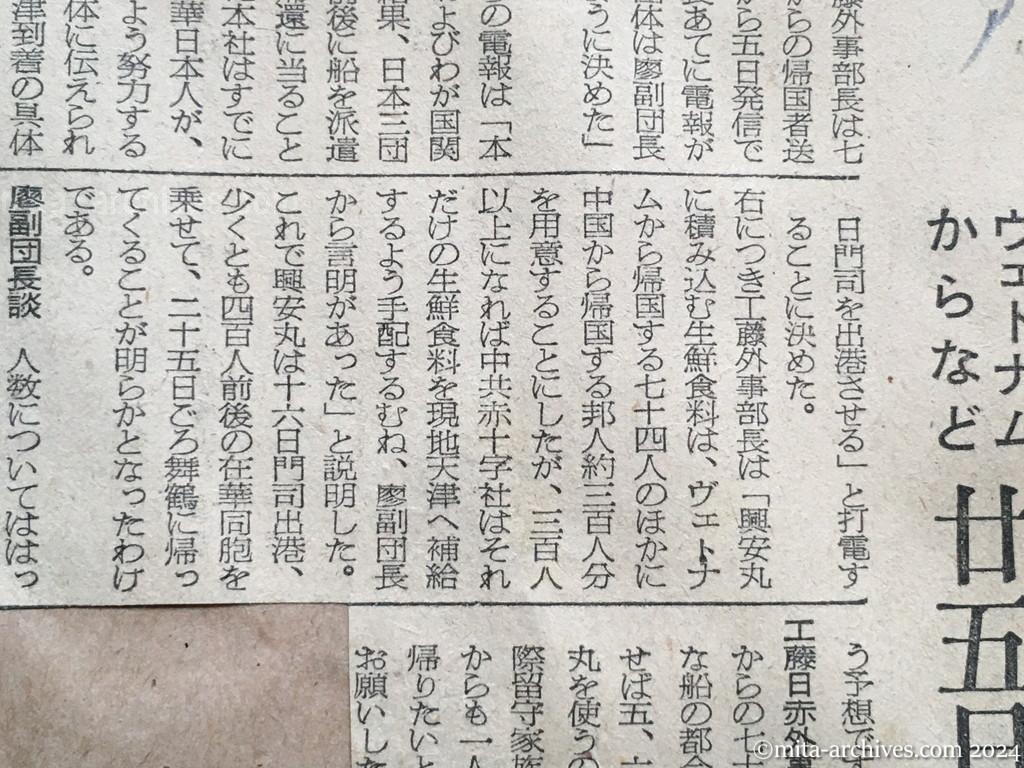 ヴェトナム
からなど
廿五日
藤外事部長は七
からの帰国者送
から五日発信で
長あてに電報が
団体は廖副団長
ように決めた」
の電報は「本
およびわが国関
結果、日本三団
前後に船を派遣
還に当ること
本社はすでに
華日本人が、
よう努力する
体に伝えられ
津到着の具体
日門司を出港させる」と打電す
ることに決めた。
右につき工藤外事部長は「興安丸
に積み込む生鮮食料は、ヴェトナ
ムから帰国する七十四人のほかに
中国から帰国する邦人約三百人分
を用意することにしたが、三百人
以上になれば中共赤十字社はそれ
だけの生鮮食料を現地天津へ補給
するよう手配するむね、廖副団長
から言明があった」と説明した。
これで興安丸は十六日門司出港、
少くとも四百人前後の在華同胞を
乗せて、二十五日ごろ舞鶴に帰っ
てくることが明らかとなったわけ
である。
廖副団長談　人数についてははっ
う予想です
工藤日赤外事
からの七十
な船の都合
せば五、六
丸を使うの
際留守家族
からも一人
帰りたいと
お願いした
©mita-archives.com 2024